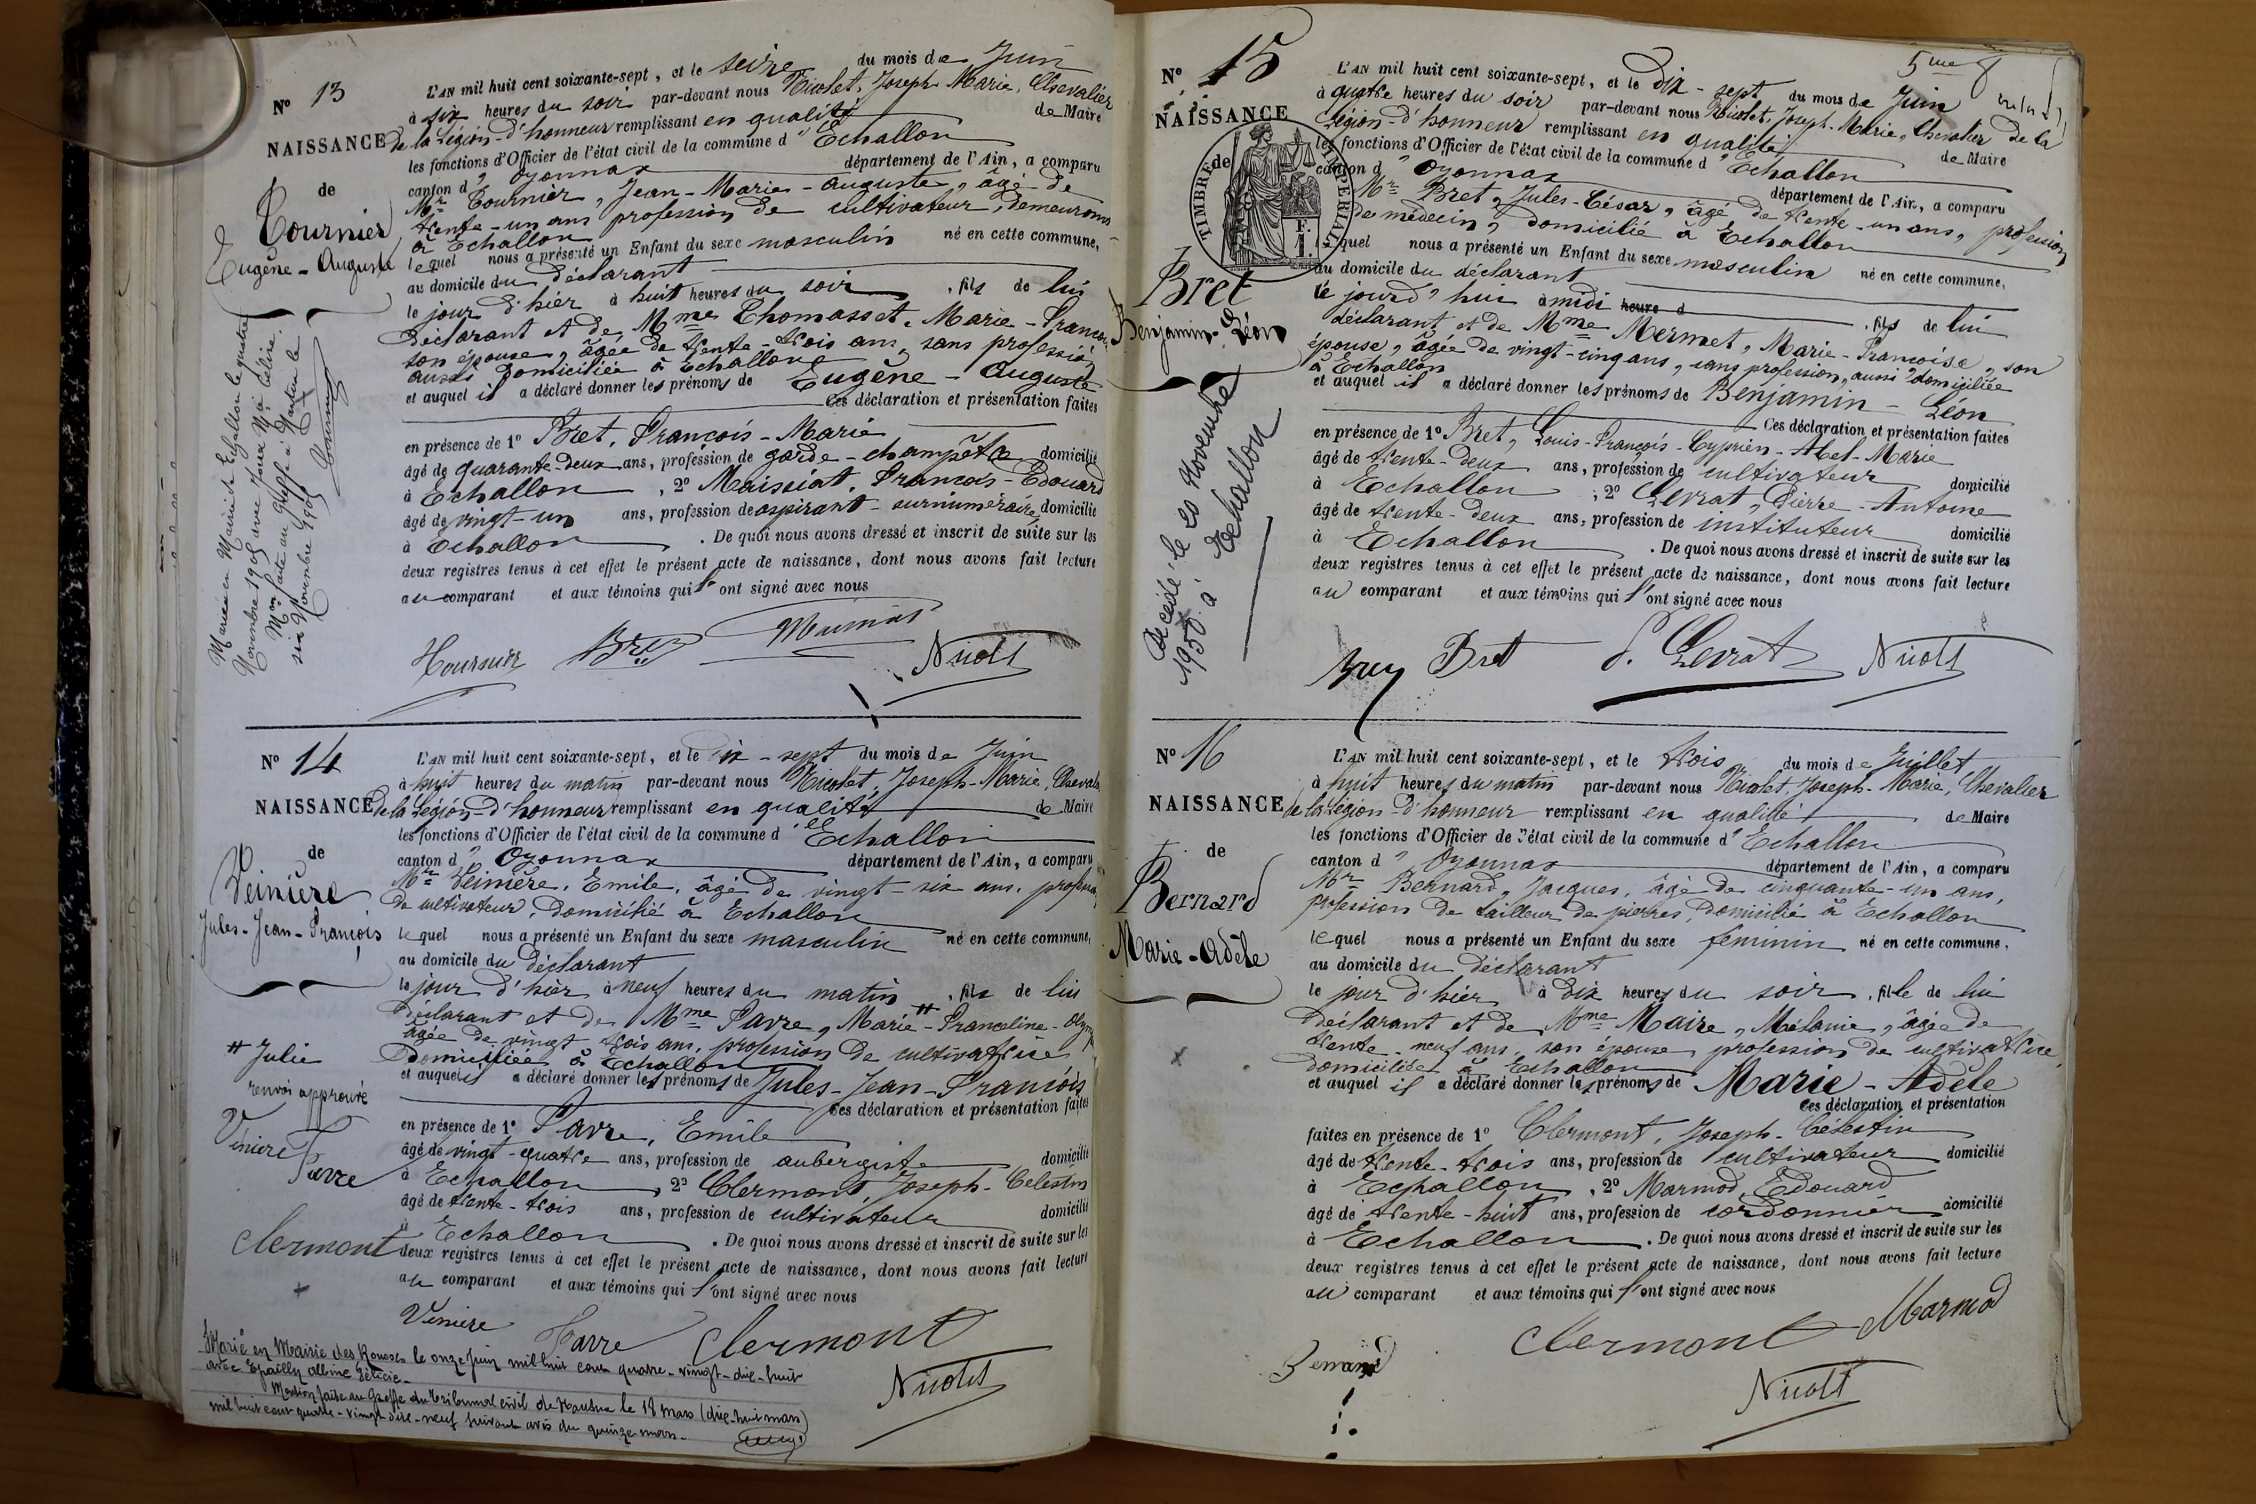 N° 13
NAISSANCE
de
Tournier
Eugène-Auguste
L'AN mil huit cent soixante-sept, et le seize du mois de Juin
à six heures du soir par-devant nous Nicolet, Joseph-Marie, Chevalier
de la Légion-d'honneur remplissant en qualité de Maire
les fonctions d'Officier de l'état civil de la commune d'Echallon
canton d'Oyonnax département de l'Ain, a comparu
Mr Tournier, Jean-Marie-Auguste, âgé de
trente-un ans profession de cultivateur, demeurant
à Echallon
lequel nous a présenté un Enfant du sexe masculin né en cette commune,
au domicile du déclarant
le jour d'hier à huit heures du soir, fils de lui
déclarant et de Mme Thomasset, Marie-Françoise
son épouse, âgée de trente-trois ans, sans profession
aussi domiciliée à Echallon
et auquel il a déclaré donner les prénoms de Eugène-Auguste
Ces déclaration et présentation faites
en présence de 1° Bret, François-Marie
âgé de quarante-deux ans, profession de garde-champêtre domicilié
à Echallon, 2° Maissiat, François-Edouard
âgé de vingt-un ans, profession de aspirant-surnuméraire, domicilié
à Echallon. De quoi nous avons dressé et inscrit de suite sur les
deux registres tenus à cet effet le présent acte de naissance, dont nous avons fait lecture
au comparant et aux témoins qui l'ont signé avec nous
Tournier Bret Maissiat Nicolet
Marié en Mairie de Echallon le quatre
Novembre 1905 avec
Mon faite au Greffe à Nantua le
six Novembre 1905
N° 14
NAISSANCE
de
Veinière
Jules-Jean-François
L'AN mil huit cent soixante-sept, et le dix-sept du mois de Juin
à huit heures du matin par-devant nous Nicolet, Joseph-Marie, Chevalier
de la Légion-d'honneur remplissant en qualité de Maire
les fonctions d'Officier de l'état civil de la commune d'Echallon
canton d'Oyonnax département de l'Ain, a comparu
Mr Veinière, Emile, âgé de vingt-six ans, profession
de cultivateur, domicilié à Echallon
lequel nous a présenté un Enfant du sexe masculin né en cette commune,
au domicile du déclarant
le jour d'hier à neuf heures du matin, fils de lui
déclarant et de Mme Favre, Marie-Franceline-Olympe
âgée de vingt trois ans, profession de cultivatrice
domiciliée à Echallon
et auquel il a déclaré donner les prénoms de Jules-Jean-François
Ces déclaration et présentation faites
en présence de 1° Favre, Emile
âgé de vingt-quatre ans, profession de aubergiste domicilié
à Echallon, 2° Clermont, Joseph-Célestin
âgé de trente-trois ans, profession de cultivateur domicilié
à Echallon. De quoi nous avons dressé et inscrit de suite sur les
deux registres tenus à cet effet le présent acte de naissance, dont nous avons fait lecture
au comparant et aux témoins qui l'ont signé avec nous
# Julie
renvoi approuvé
Vénière
Favre
Clermont
Vénière Favre Clermont
Nicolet
Marié en Mairie des Rousses le onze Juin mil huit cent quatre-vingt-dix-huit
avec Albine Léticie.
Mention faite au Greffe du Tribunal civil de Nantua le 18 mars (dix-huit mars)
mil huit cent quatre-vingt dix-neuf suivant avis du quinze mars.
5me f
N° 15
NAISSANCE
de
TIMBRE IMPERIAL
F. 1.
Bret
Benjamin-Léon
L'AN mil huit cent soixante-sept, et le dix-sept du mois de Juin
à quatre heures du soir par-devant nous Nicolet, Joseph-Marie, Chevalier de la
Légion-d'honneur remplissant en qualité de Maire
les fonctions d'Officier de l'état civil de la commune d'Echallon
canton d'Oyonnax département de l'Ain, a comparu
Mr Bret, Jules-César, âgé de trente-un ans, profession
de médecin, domicilié à Echallon
lequel nous a présenté un Enfant du sexe masculin né en cette commune,
au domicile du déclarant
le jourd'hui à midi heure d, fils de lui
déclarant et de Mme Mermet, Marie-Françoise, son
épouse, âgée de vingt-cinq ans, sans profession, aussi domiciliée
à Echallon
et auquel il a déclaré donner les prénoms de Benjamin-Léon
Ces déclaration et présentation faites
en présence de 1° Bret, Louis-François-Cyprien-Abel-Marie
âgé de trente-deux ans, profession de cultivateur domicilié
à Echallon; 2° Levrat, Pierre-Antoine
âgé de trente-deux ans, profession de instituteur domicilié
à Echallon. De quoi nous avons dressé et inscrit de suite sur les
deux registres tenus à cet effet le présent acte de naissance, dont nous avons fait lecture
au comparant et aux témoins qui l'ont signé avec nous
Bret P. Levrat Nicolet
Décédé le 20 Novembre
1950 à Echallon
N° 16
NAISSANCE
de
Bernard
Marie-Adèle
L'AN mil huit cent soixante-sept, et le trois du mois de Juillet
à huit heures du matin par-devant nous Nicolet, Joseph-Marie, Chevalier
de la Légion-d'honneur remplissant en qualité de Maire
les fonctions d'Officier de l'état civil de la commune d'Echallon
canton d'Oyonnax département de l'Ain, a comparu
Mr Bernard, Jacques, âgé de cinquante-un ans,
profession de tailleur de pierres, domicilié à Echallon
lequel nous a présenté un Enfant du sexe feminin né en cette commune,
au domicile du déclarant
le jour d'hier à dix heures du soir, fille de lui
déclarant et de Mme Maire, Mélanie, âgée de
trente-neuf ans, son épouse, profession de cultivatrice,
domiciliée à Echallon
et auquel il a déclaré donner les prénoms de Marie-Adèle
Ces déclaration et présentation
faites en présence de 1° Clermont, Joseph-Célestin
âgé de trente-trois ans, profession de cultivateur domicilié
à Echallon, 2° Marmod, Edouard
âgé de trente-huit ans, profession de cordonnier domicilié
à Echallon. De quoi nous avons dressé et inscrit de suite sur les
deux registres tenus à cet effet le présent acte de naissance, dont nous avons fait lecture
au comparant et aux témoins qui l'ont signé avec nous
Bernard Clermont Marmod
Nicolet